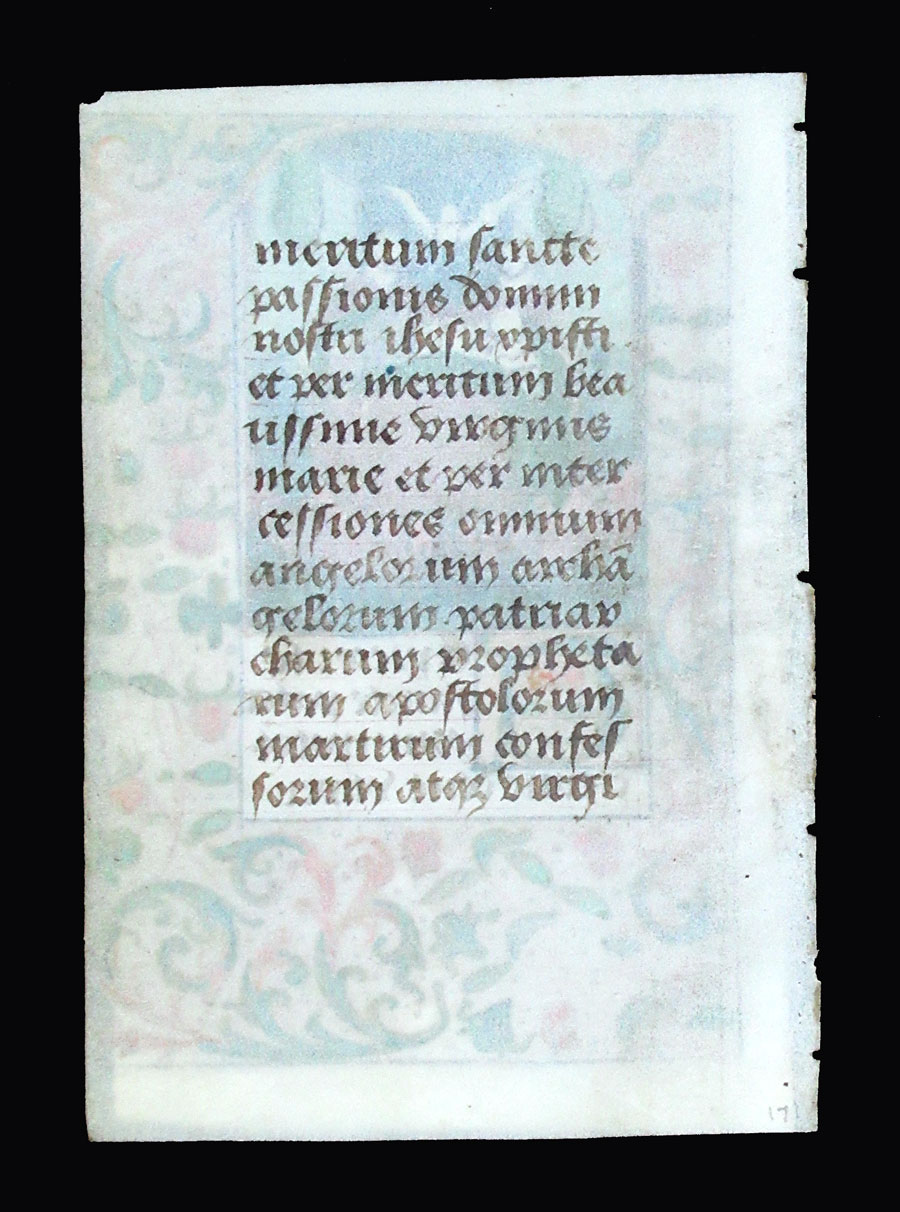 meritum sancte
passionis domini
nostri ihesu xpisti
et per meritum bea
tissime virginis
marie et per inter
cessiones omnium
angelorum archā
gelorum patriar
charum propheta
rum apostolorum
martirum confes
sorum atqꝫ virgi
171